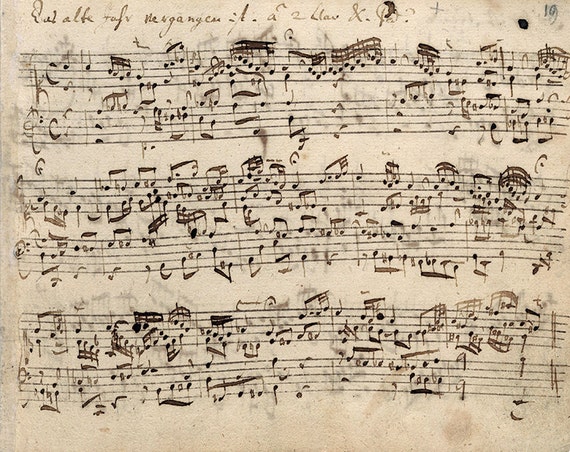 Das alte Jahr vergangen ist. à 2 Clav. & Ped.
19